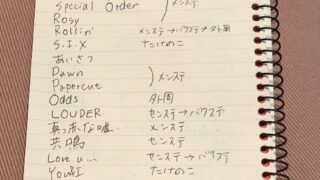 Special Order ) メンステ
Rosy
Rollin' メンステ→バクステ→外周
S.I.X たけのこ
あいさつ
Dawn ) メンステ
Papercut
Odds 外周
LOUDER センステ→バクステ
真っ赤な嘘 メンステ
共鳴 センステ
Love u... センステ→バクステ
You&I たけのこ